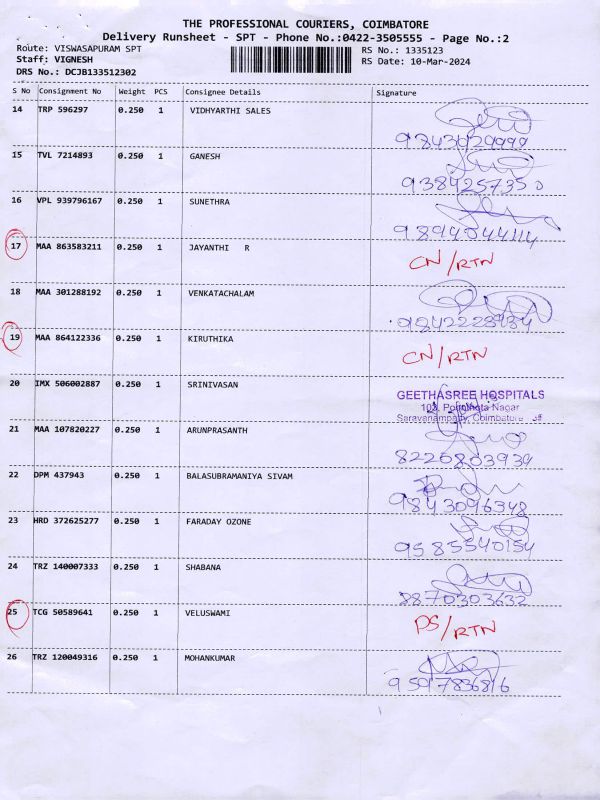 THE PROFESSIONAL COURIERS, COIMBATORE
Delivery Runsheet - SPT - Phone No.:0422-3505555 - Page No.:2
Route: VISWASAPURAM SPT RS No.: 1335123
Staff: VIGNESH RS Date: 10-Mar-2024
DRS No.: DCJB133512302
S No Consignment No Weight PCS Consignee Details Signature
14 TRP 596297 0.250 1 VIDHYARTHI SALES
9843029999
15 TVL 7214893 0.250 1 GANESH
9384257350
16 VPL 939796167 0.250 1 SUNETHRA
9894044114
17 MAA 863583211 0.250 1 JAYANTHI R CN/RTN
18 MAA 301288192 0.250 1 VENKATACHALAM
19 MAA 864122336 0.250 1 KIRUTHIKA CN/RTN
20 IMX 506002887 0.250 1 SRINIVASAN GEETHASREE HOSPITALS
Nagar
Saravanampatty, Coimbatore
21 MAA 107820227 0.250 1 ARUNPRASANTH
8220803939
22 DPM 437943 0.250 1 BALASUBRAMANIYA SIVAM
9843096348
23 HRD 372625277 0.250 1 FARADAY OZONE
9585540154
24 TRZ 140007333 0.250 1 SHABANA
8870303632
25 TCG 50589641 0.250 1 VELUSWAMI PS/RTN
26 TRZ 120049316 0.250 1 MOHANKUMAR